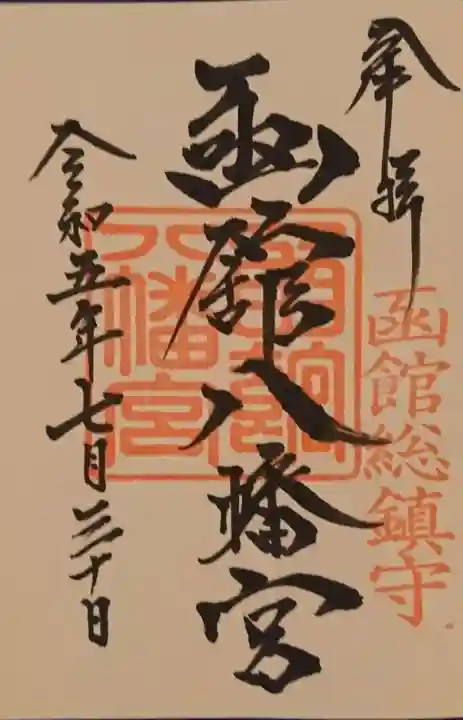 奉拝
函館総鎮守
函館八幡宮
八幡宮
令和五年七月三十日